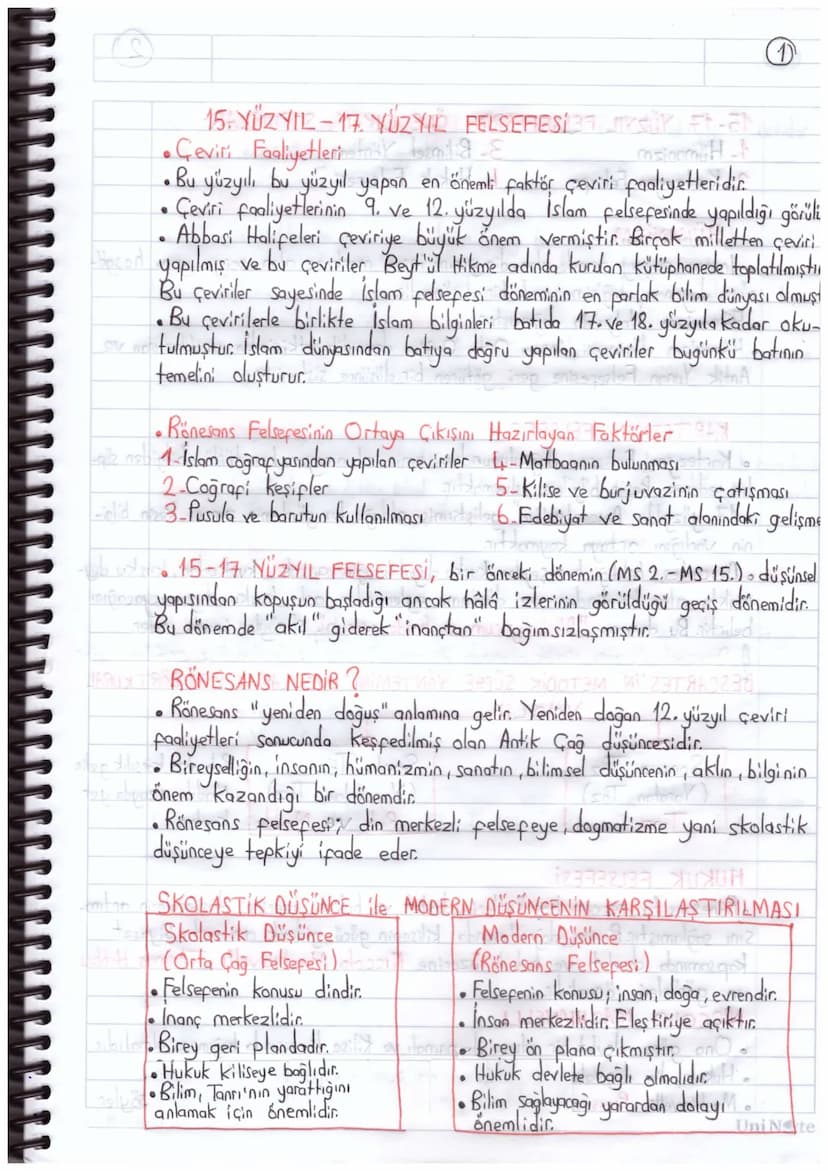 1
15. YÜZYIL - 17. YÜZYIL FELSEFESİ
• Çeviri Faaliyetleri
• Bu yüzyılı bu yüzyıl yapan en önemli faktör çeviri faaliyetleridir.
• Çeviri faaliyetlerinin 9. ve 12. yüzyılda İslam felsefesinde yapıldığı görülü
• Abbasi Halifeleri çeviriye büyük önem vermiştir. Birçok milletten çeviri
yapılmış ve bu çeviriler Beyt'ül Hikme adında kurulan kütüphanede toplatılmıştı
Bu çeviriler sayesinde İslam felsefesi döneminin en parlak bilim dünyası olmuşt
• Bu çevirilerle birlikte İslam bilginleri batıda 17. ve 18. yüzyıla kadar oku-
tulmuştur. İslam dünyasından batıya doğru yapılan çeviriler bugünkü batının
temelini oluşturur.
• Rönesans Felsefesinin Ortaya Çıkışını Hazırlayan Faktörler
1- İslam coğrafyasından yapılan çeviriler 4- Matbaanın bulunması
2- Coğrafi keşifler 5- Kilise ve burjuvazinin çatışması
3- Pusula ve barutun kullanılması 6- Edebiyat ve sanat alanındaki gelişme
• 15-17. YÜZYIL FELSEFESİ, bir önceki dönemin (MS 2. - MS 15.) düşünsel
yapısından kopuşun başladığı ancak hâlâ izlerinin görüldüğü geçiş dönemidir.
Bu dönemde "akıl" giderek "inançtan" bağımsızlaşmıştır.
RÖNESANS NEDİR?
• Rönesans "yeniden doğuş" anlamına gelir. Yeniden doğan 12. yüzyıl çeviri
faaliyetleri sonucunda keşfedilmiş olan Antik Çağ düşüncesidir.
• Bireyselliğin, insanın, hümanizmin, sanatın, bilimsel düşüncenin, aklın, bilginin
önem kazandığı bir dönemdir.
• Rönesans felsefesi; din merkezli felsefeye, dogmatizme yani skolastik
düşünceye tepkiyi ifade eder.
SKOLASTİK DÜŞÜNCE ile MODERN DÜŞÜNCENİN KARŞILAŞTIRILMASI
Skolastik Düşünce
(Orta Çağ Felsefesi)
• Felsefenin konusu dindir.
• İnanç merkezlidir.
• Birey geri plandadır.
• Hukuk kiliseye bağlıdır.
• Bilim, Tanrı'nın yarattığını
anlamak için önemlidir.
Modern Düşünce
(Rönesans Felsefesi)
• Felsefenin konusu; insan, doğa, evrendir.
• İnsan merkezlidir. Eleştiriye açıktır.
• Birey ön plana çıkmıştır.
• Hukuk devlete bağlı olmalıdır.
• Bilim sağlayacağı yarardan dolayı
önemlidir.
UniNote